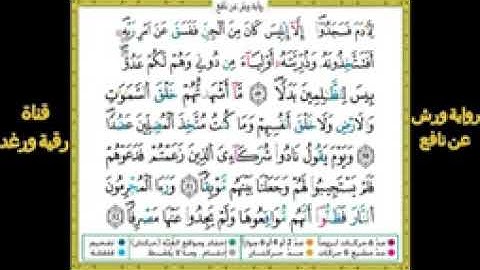 رواية ورش عن نافع
لِأَدَمَ فَسَجَدُوٓاْ إِلَّآ إِبْلِيسَ كَانَ مِنَ اَلْجِنِّ فَفَسَقَ عَنَ اَمْرِ رَبِّهِۦٓ
أَفَتَتَّخِذُونَهُۥ وَذُرِّيَّتَهُۥٓ أَوْلِيَآءَ مِن دُونِے وَهُمْ لَكُمْ عَدُوُّۢ
بِيسَ لِلظَّٰلِمِينَ بَدَلًا مَّآ أَشْهَدتُّهُمْ خَلْقَ اَلسَّمَٰوَٰتِ
وَالَارْضِ وَلَا خَلْقَ أَنفُسِهِمْ وَمَا كُنتُ مُتَّخِذَ اَلْمُضِلِّينَ عَضُدًا
وَيَوْمَ يَقُولُ نَادُواْ شُرَكَآءِىَ اَلذِينَ زَعَمْتُمْ فَدَعَوْهُمْ
فَلَمْ يَسْتَجِيبُواْ لَهُمْ وَجَعَلْنَا بَيْنَهُم مَّوْبِقًا وَرَءَا اَلْمُجْرِمُونَ
اَلنَّارَ فَظَنُّوٓاْ أَنَّهُم مُّوَاقِعُوهَا وَلَمْ يَجِدُواْ عَنْهَا مَصْرِفًا
رواية ورش
عن نافع
قناة
رقية ورغد